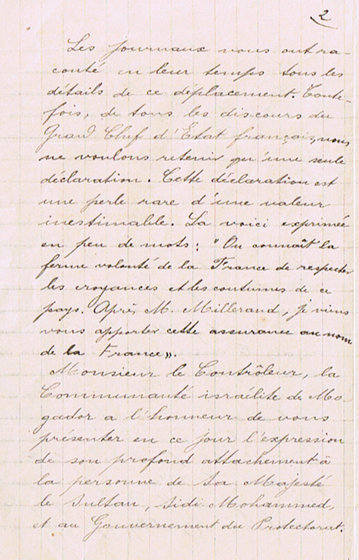 2
Les journaux vous ont ra-
conté en leur temps tous les
détails de ce déplacement. Toute-
fois, de tous les discours du
Grand Chef d'État français, nous
ne voulons retenir qu'une seule
déclaration. Cette déclaration est
une perle rare d'une valeur
inestimable. La voici exprimée
en peu de mots : "On connaît la
ferme volonté de la France de respecter
les croyances et les coutumes de ce
pays. Après M. Millerand, je viens
vous apporter cette assurance au nom
de la France".
Monsieur le Contrôleur, la
Communauté israélite de Mo-
gador a l'honneur de vous
présenter en ce jour l'expression
de son profond attachement à
la personne de Sa Majesté
le Sultan, Sidi Mohammed,
et au Gouvernement du Protectorat.